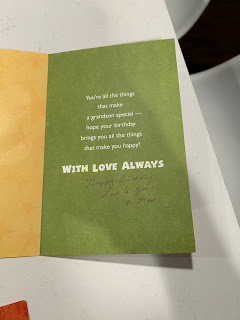 You're all the things
that make
a grandson special —
hope your birthday
brings you all the things
that make you happy!
WITH LOVE ALWAYS
Happy Birthday